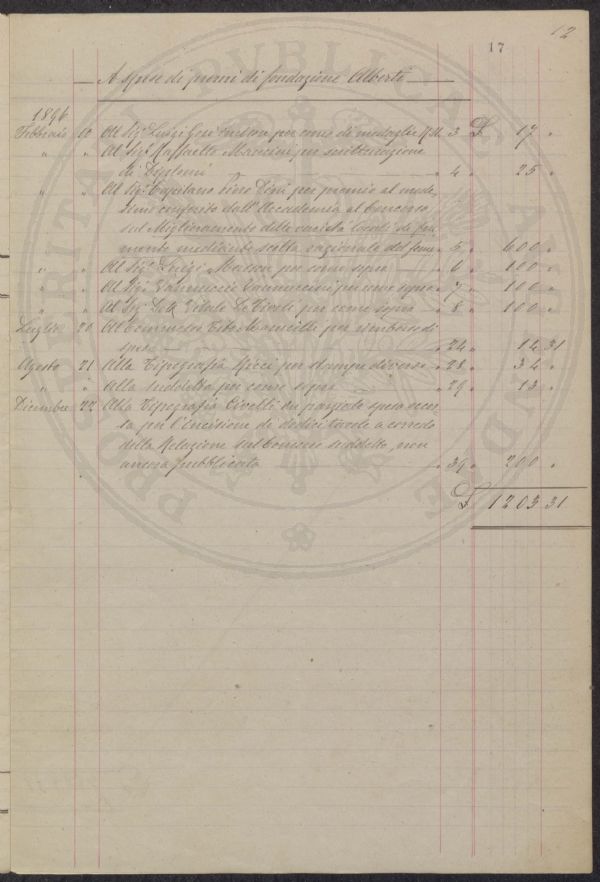 12
17
A Spese di premi di fondazione Alberti
1896
Febbraio 10 Al Sig. Luigi per conio di medaglie M. 3 £ 17 "
" " Al Sig. Raffaello Mancini per
di Diplomi " 4 " 25 "
" " Al Sig. Capitano Pino Dini per premio al mede-
simo conferito dall'Accademia al Concorso
sul Miglioramento delle varietà locali di fru-
mento mediante scelta razionale del seme " 5 " 600 "
" " Al Sig. Luigi Masson per come sopra " 6 " 100 "
" " Al Sig. Vannuccio Vannuccini per come sopra " 7 " 100 "
" " Al Sig. Dott. Vitale per come sopra " 8 " 100 "
Luglio 20 Al Comm. Mancelli per rimborso di
spese " 24 " 14 31
Agosto 21 Alla Tipografia Ricci per stampe diverse " 28 " 34 "
" " Alla suddetta per come sopra " 29 " 13 "
Dicembre 22 Alla Tipografia Civelli in spesa occor-
sa per l'incisione di dodici tavole a corredo
della Relazione sul Concorso suddetto, non
ancora pubblicata " 39 " 200 "
£ 1203 31
PROSPERITATI PUBLICAE AUGENDAE